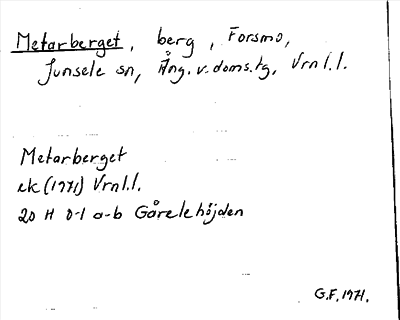 Metarberget, berg, Forsmo,
Junsele sn, Ång. v. doms. tg, Vrnl.l.
Metarberget
ek (1971) Vrnl.l.
20 H 0-1 a-b Gårelehöjden
G.F. 1971.